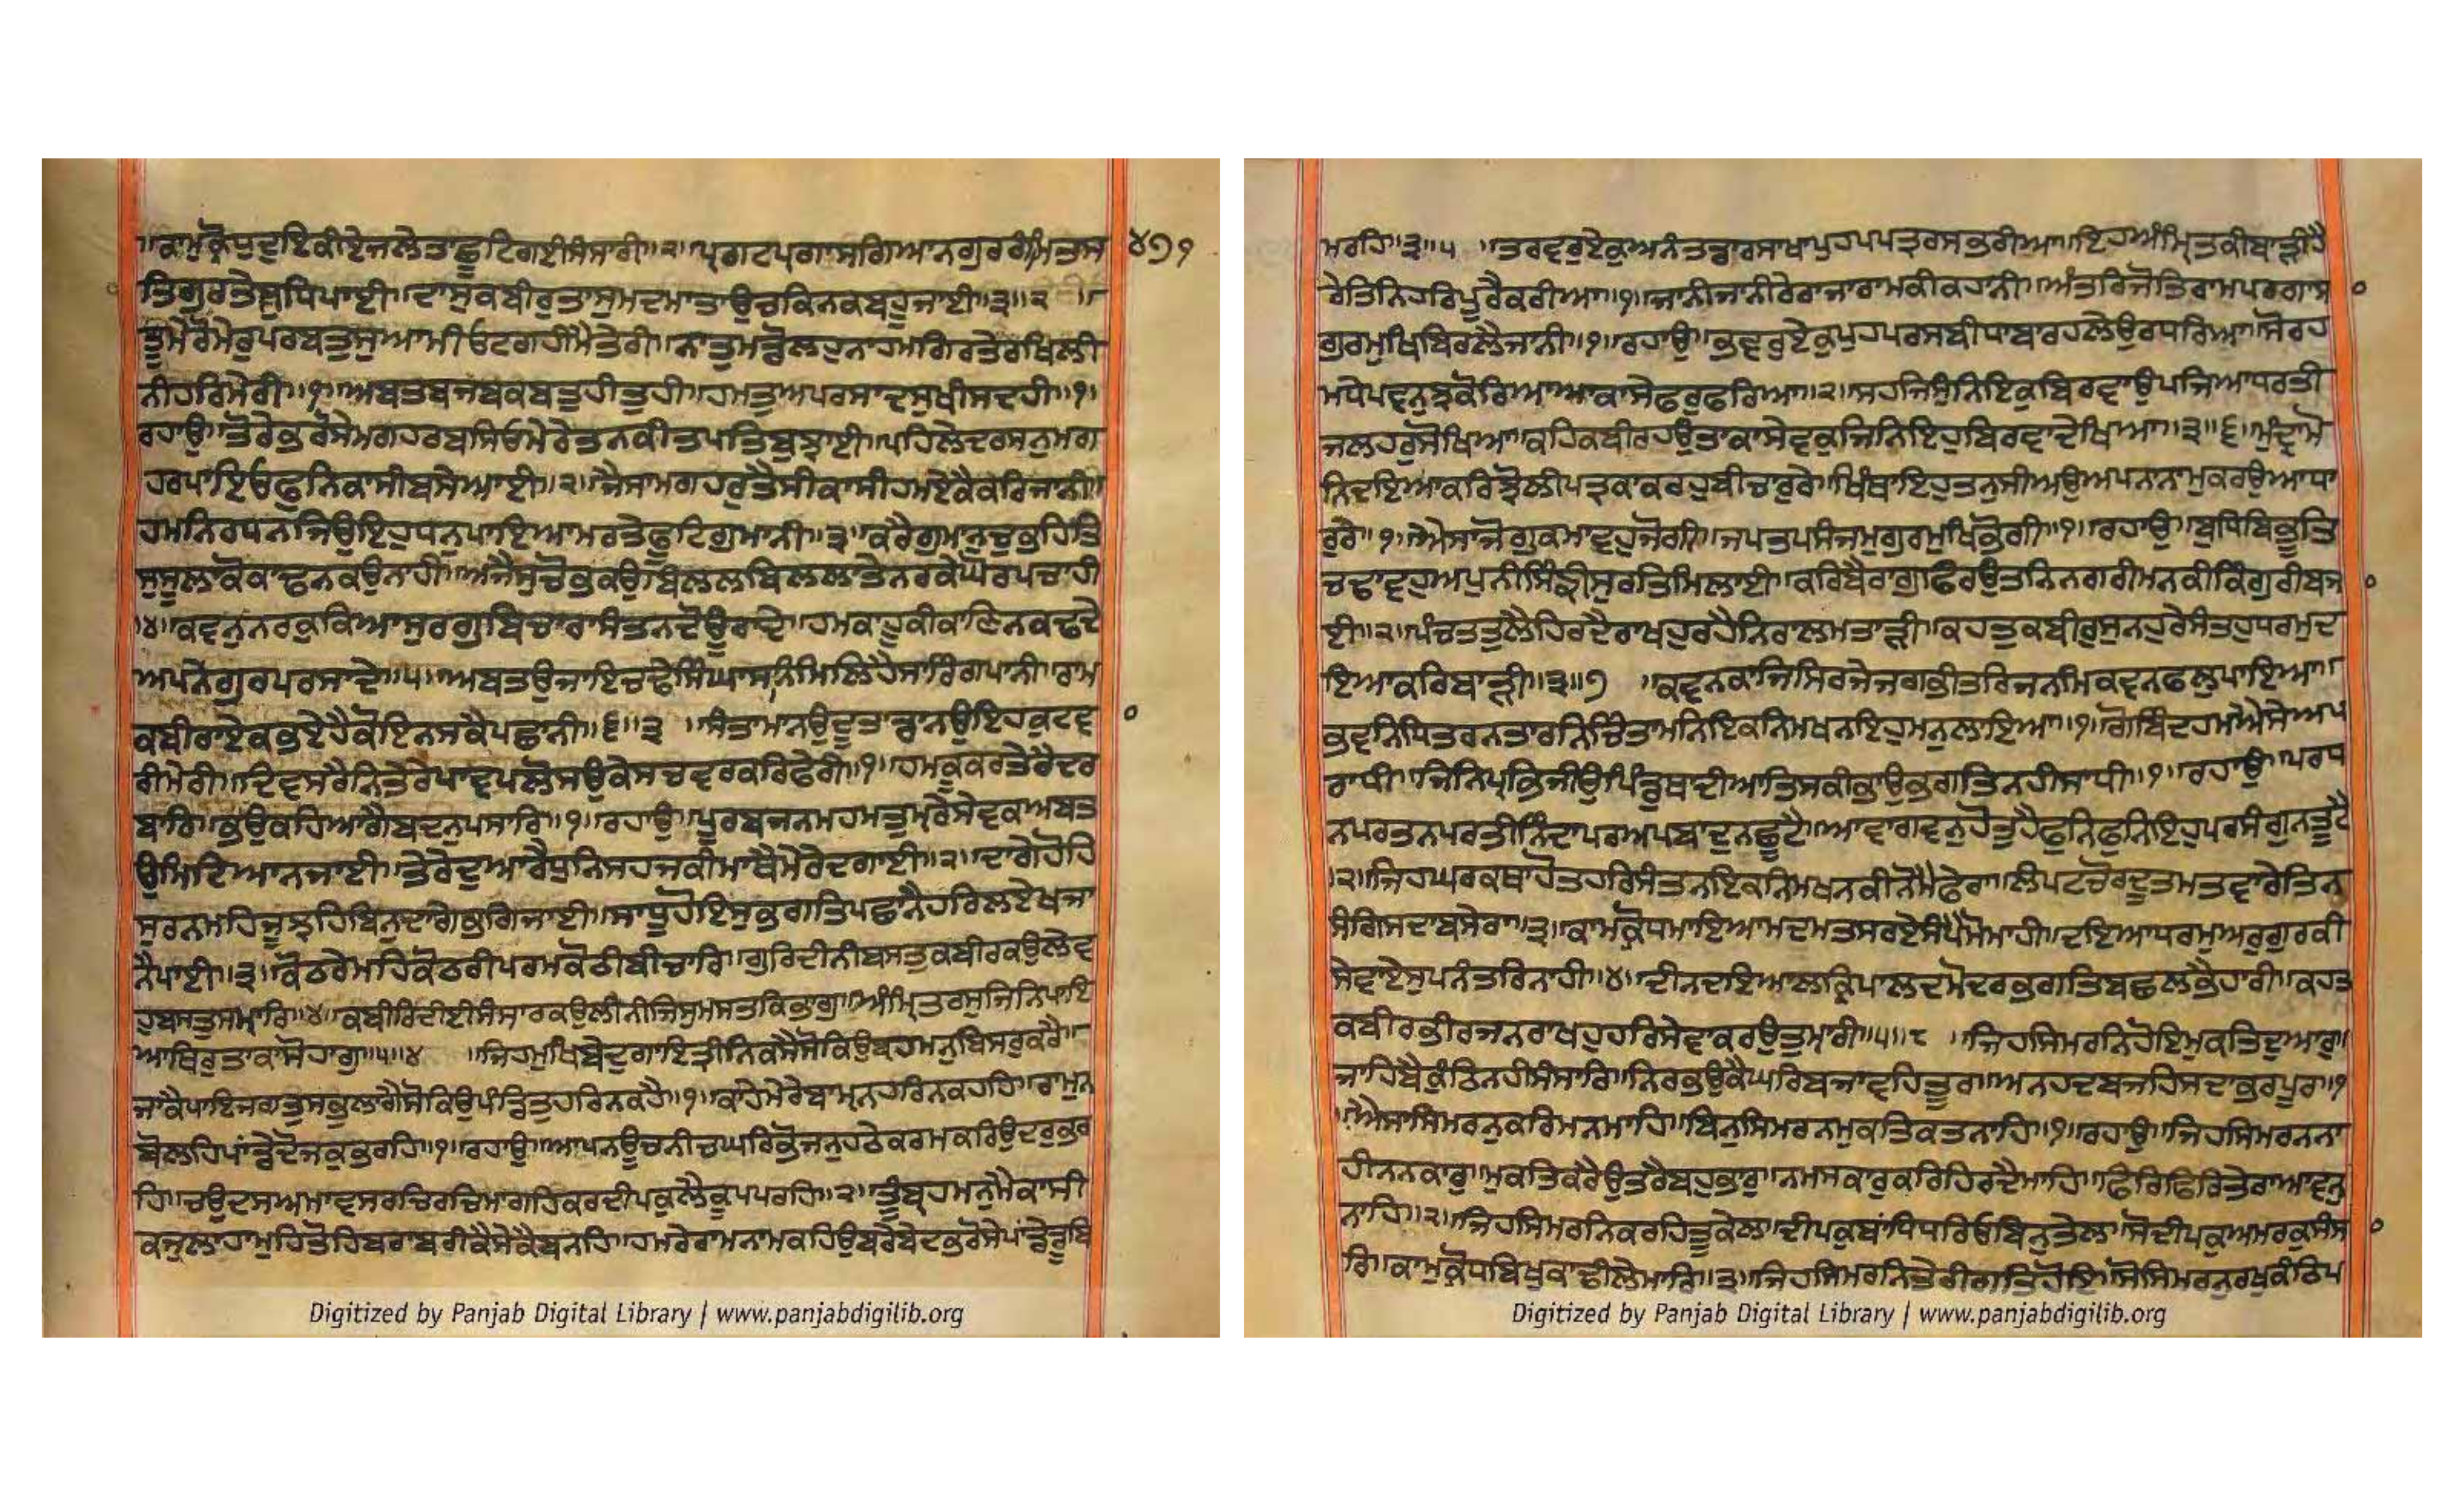 ॥ਕਾਮੁਕ੍ਰੋਧੁਦੁਇਕੀਏਜਲੇਤਾਛੂਟਿਗਈਸੰਸਾਰੀ॥੨॥ਪ੍ਰਗਟਪ੍ਰਗਾਸਗਿਆਨਗੁਰਗੰਮਿਤਸ
੪੭੧
ਤਿਗੁਰਤੇਸੁਧਿਪਾਈ॥ਦਾਸੁਕਬੀਰੁਤਾਸੁਮਦਮਾਤਾਉਚਕਿਨਕਬਹੂਜਾਈ॥੩॥੨ ॥
ਤੂਮੇਰੋਮੇਰੁਪਰਬਤੁਸੁਆਮੀਓਟਗਹੀਮੈਤੇਰੀ॥ਨਾਤੁਮਡੋਲਹੁਨਾਹਮਗਿਰਤੇਰਖਿਲੀ
ਨੀਹਰਿਮੇਰੀ॥੧॥ਅਬਤਬਜਬਕਬਤੁਹੀਤੁਹੀ॥ਹਮਤੁਅਪਰਸਾਦਸੁਖੀਸਦਹੀ॥੧॥
ਰਹਾਉ॥ਤੋਰੇਭਰੋਸੇਮਗਹਰਬਸਿਓਮੇਰੇਤਨਕੀਤਪਤਿਬੁਝਾਈ॥ਪਹਿਲੇਦਰਸਨੁਮਗ
ਹਰਪਾਇਓਫੁਨਿਕਾਸੀਬਸੇਆਈ॥੨॥ਜੈਸਾਮਗਹਰੁਤੈਸੀਕਾਸੀਹਮਏਕੈਕਰਿਜਾਨੀ॥
ਹਮਨਿਰਧਨਜਿਉਇਹੁਧਨੁਪਾਇਆਮਰਤੇਫੂਟਿਗੁਮਾਨੀ॥੩॥ਕਰੈਗੁਮਾਨੁਚੁਭਹਿਤਿ
ਸੁਸੂਲਾਕੋਕਾਢਨਕਉਨਾਹੀ॥ਅਜੈਸੁਚੋਭਕਉਬਿਲਲਬਿਲਲਾਤੇਨਰਕੇਘੋਰਪਚਾਹੀ
॥੪॥ਕਵਨੁਨਰਕੁਕਿਆਸੁਰਗੁਬਿਚਾਰਾਸੰਤਨਦੋਊਰਾਦੇ॥ਹਮਕਾਹੂਕੀਕਾਣਿਨਕਢਤੇ
ਅਪਨੇਗੁਰਪਰਸਾਦੇ॥੫॥ਅਬਤਉਜਾਇਚਢੇਸਿੰਘਾਸਨਿਮਿਲਿਹੈਸਾਰਿੰਗਪਾਨੀ॥ਰਾਮ
ਕਬੀਰਾਏਕਭਏਹੈਕੋਇਨਸਕੈਪਛਾਨੀ॥੬॥੩ ॥ਸੰਤਾਮਾਨਉਦੂਤਾਡਾਨਉਇਹਕੁਟਵ
ਰੀਮੇਰੀ॥ਦਿਵਸਰੈਨਿਤੇਰੇਪਾਵਪਲੋਸਉਕੇਸਚਵਰਕਰਿਫੇਰੀ॥੧॥ਹਮਕੂਕਰਤੇਰੇਦਰ
ਬਾਰਿ॥ਭਉਕਹਿਆਗੈਬਦਨੁਪਸਾਰਿ॥੧॥ਰਹਾਉ॥ਪੂਰਬਜਨਮਹਮਤੁਮ੍ਰੇਸੇਵਕਅਬਤ
ਉਮਿਟਿਆਨਜਾਈ॥ਤੇਰੇਦੁਆਰੈਧੁਨਿਸਹਜਕੀਮਾਥੈਮੇਰੇਦਗਾਈ॥੨॥ਦਾਗੇਹੋਹਿ
ਸੁਰਨਮਹਿਜੂਝਹਿਬਿਨੁਦਾਗੇਭਗਿਜਾਈ॥ਸਾਧੂਹੋਇਸੁਭਗਤਿਪਛਾਨੈਹਰਿਲਏਖਜਾ
ਨੈਪਾਈ॥੩॥ਕੋਠਰੇਮਹਿਕੋਠਰੀਪਰਮਕੋਠੀਬੀਚਾਰਿ॥ਗੁਰਿਦੀਨੀਬਸਤੁਕਬੀਰਕਉਲੇਵ
ਹੁਬਸਤੁਸਮ੍ਹਾਰਿ॥੪॥ਕਬੀਰਿਦੀਈਸੰਸਾਰਕਉਲੀਨੀਜਿਸੁਮਸਤਕਿਭਾਗੁ॥ਅੰਮ੍ਰਿਤਰਸੁਜਿਨਿਪਾਇ
ਆਥਿਰੁਤਾਕਾਸੋਹਾਗੁ॥੫॥੪ ॥ਜਿਹਮੁਖਿਬੇਦੁਗਾਇਤ੍ਰੀਨਿਕਸੈਸੋਕਿਉਬ੍ਰਹਮਨੁਬਿਸਰੁਕਰੈ॥
ਜਾਕੈਪਾਇਜਗਤੁਸਭੁਲਾਗੈਸੋਕਿਉਪੰਡਿਤੁਹਰਿਨਕਹੈ॥੧॥ਕਾਹੇਮੇਰੇਬਾਮ੍ਹਨਹਰਿਨਕਹਹਿ॥ਰਾਮੁਨ
ਬੋਲਹਿਪਾਡੇਦੋਜਕੁਭਰਹਿ॥੧॥ਰਹਾਉ॥ਆਪਨਊਚਨੀਚਘਰਿਭੋਜਨੁਹਠੇਕਰਮਕਰਿਉਦਰੁਭਰ
ਹਿ॥ਚਉਦਸਅਮਾਵਸਰਚਿਰਚਿਮਾਗਹਿਕਰਦੀਪਕੁਲੈਕੂਪਪਰਹਿ॥੨॥ਤੂੰਬ੍ਰਹਮਨੁਮੈਕਾਸੀ
ਕਜੁਲਾਹਾਮੁਹਿਤੋਹਿਬਰਾਬਰੀਕੈਸੇਕੈਬਨਹਿ॥ਹਮਰੇਰਾਮਨਾਮਕਹਿਉਬਰੇਬੇਦਭਰੋਸੇਪਾਂਡੇਡੂਬਿ
Digitized by Panjab Digital Library | www.panjabdigilib.org
ਮਰਹਿ॥੩॥੫ ॥ਤਰਵਰੁਏਕੁਅਨੰਤਡਾਰਸਾਖਾਪੁਹਪਪਤ੍ਰਰਸਭਰੀਆ॥ਇਹਅੰਮ੍ਰਿਤਕੀਬਾੜੀਹੈ
ਰੇਤਿਨਿਹਰਿਪੂਰੈਕਰੀਆ॥੧॥ਜਾਨੀਜਾਨੀਰੇਰਾਜਾਰਾਮਕੀਕਹਾਨੀ॥ਅੰਤਰਿਜੋਤਿਰਾਮਪਰਗਾਸ
ਗੁਰਮੁਖਿਬਿਰਲੈਜਾਨੀ॥੧॥ਰਹਾਉ॥ਭਵਰੁਏਕੁਪੁਹਪਰਸਬੀਧਾਬਾਰਹਲੇਉਰਧਰਿਆ॥ਸੋਰਹ
ਮਧੇਪਵਨੁਝਕੋਰਿਆਆਕਾਸੇਫਰੁਫਰਿਆ॥੨॥ਸਹਜਿਸੁੰਨਿਇਕੁਬਿਰਵਾਉਪਜਿਆਧਰਤੀ
ਜਲਹਰੁਸੋਖਿਆ॥ਕਹਿਕਬੀਰਹਉਤਾਕਾਸੇਵਕੁਜਿਨਿਇਹੁਬਿਰਵਾਦੇਖਿਆ॥੩॥੬॥ਮੁੰਦ੍ਰਾਮੋ
ਨਿਦਇਆਕਰਿਝੋਲੀਪਤ੍ਰਕਾਕਰਹੁਬੀਚਾਰੁਰੇ॥ਖਿੰਥਾਇਹੁਤਨੁਸੀਅਉਅਪਨਾਨਾਮੁਕਰਉਆਧਾ
ਰੁਰੇ॥੧॥ਐਸਾਜੋਗੁਕਮਾਵਹੁਜੋਗੀ॥ਜਪਤਪਸੰਜਮੁਗੁਰਮੁਖਿਭੋਗੀ॥੧॥ਰਹਾਉ॥ਬੁਧਿਬਿਭੂਤਿ
ਚਢਾਵਹੁਅਪੁਨੀਸਿੰਙੀਸੁਰਤਿਮਿਲਾਈ॥ਕਰਿਬੈਰਾਗੁਫਿਰਉਤਨਿਨਗਰੀਮਨਕੀਕਿੰਗੁਰੀਬਜ
ਈ॥੨॥ਪੰਚਤਤੁਲੈਹਿਰਦੈਰਾਖਹੁਰਹੈਨਿਰਾਲਮਤਾੜੀ॥ਕਹਤੁਕਬੀਰੁਸੁਨਹੁਰੇਸੰਤਹੁਧਰਮੁਦ
ਇਆਕਰਿਬਾੜੀ॥੩॥੭ ॥ਕਵਨਕਾਜਿਸਿਰਜੇਜਗਭੀਤਰਿਜਨਮਿਕਵਨਫਲੁਪਾਇਆ॥
ਭਵਨਿਧਿਤਰਨਤਾਰਨਿਚਿੰਤਾਮਨਿਇਕਨਿਮਖਨਇਹੁਮਨੁਲਾਇਆ॥੧॥ਗੋਬਿੰਦਹਮਐਸੇਅਪ
ਰਾਧੀ॥ਜਿਨਿਪ੍ਰਭਿਜੀਉਪਿੰਡੁਥਾਦੀਆਤਿਸਕੀਭਾਉਭਗਤਿਨਹੀਸਾਧੀ॥੧॥ਰਹਾਉ॥ਪਰਧ
ਨਪਰਤਨਪਰਤੀਨਿੰਦਾਪਰਅਪਬਾਦੁਨਛੂਟੈ॥ਆਵਾਗਵਨੁਹੋਤੁਹੈਫੁਨਿਫੁਨਿਇਹੁਪਰਸੰਗੁਨਤੂਟੈ
॥੨॥ਜਿਹਘਰਕਥਾਹੋਤਹਰਿਸੰਤਨਇਕਨਿਮਖਨਕੀਨੋਮੈਫੇਰਾ॥ਲੰਪਟਚੋਰਦੂਤਮਤਵਾਰੇਤਿਨ
ਸੰਗਿਸਦਾਬਸੇਰਾ॥੩॥ਕਾਮਕ੍ਰੋਧਮਾਇਆਮਦਮਤਸਰਏਸੰਪੈਮੋਮਾਹੀ॥ਦਇਆਧਰਮੁਅਰੁਗੁਰਕੀ
ਸੇਵਾਏਸੁਪਨੰਤਰਿਨਾਹੀ॥੪॥ਦੀਨਦਇਆਲਕ੍ਰਿਪਾਲਦਮੋਦਰਭਗਤਿਬਛਲਭੈਹਾਰੀ॥ਕਹਤ
ਕਬੀਰਭੀਰਜਨਰਾਖਹੁਹਰਿਸੇਵਾਕਰਉਤੁਮ੍ਹਾਰੀ॥੫॥੮ ॥ਜਿਹਸਿਮਰਨਿਹੋਇਮੁਕਤਿਦੁਆਰੁ॥
ਜਾਹਿਬੈਕੁੰਠਿਨਹੀਸੰਸਾਰਿ॥ਨਿਰਭਉਕੈਘਰਿਬਜਾਵਹਿਤੂਰ॥ਅਨਹਦਬਜਹਿਸਦਾਭਰਪੂਰ॥੧
॥ਐਸਾਸਿਮਰਨੁਕਰਿਮਨਮਾਹਿ॥ਬਿਨੁਸਿਮਰਨਮੁਕਤਿਕਤਨਾਹਿ॥੧॥ਰਹਾਉ॥ਜਿਹਸਿਮਰਨਨਾ
ਹੀਨਨਕਾਰੁ॥ਮੁਕਤਿਕਰੈਉਤਰੈਬਹੁਭਾਰੁ॥ਨਮਸਕਾਰੁਕਰਿਹਿਰਦੈਮਾਹਿ॥ਫਿਰਿਫਿਰਿਤੇਰਾਆਵਨੁ
ਨਾਹਿ॥੨॥ਜਿਹਸਿਮਰਨਿਕਰਹਿਤੂਕੇਲ॥ਦੀਪਕੁਬਾਂਧਿਧਰਿਓਬਿਨੁਤੇਲ॥ਸੋਦੀਪਕੁਅਮਰਕੁਸੰਸਾ
ਰਿ॥ਕਾਮੁਕ੍ਰੋਧਬਿਖੁਕਾਢੀਲੇਮਾਰਿ॥੩॥ਜਿਹਸਿਮਰਨਿਤੇਰੀਗਤਿਹੋਇ॥ਸੋਸਿਮਰਨੁਰਖੁਕੰਠਿਪ
Digitized by Panjab Digital Library | www.panjabdigilib.org